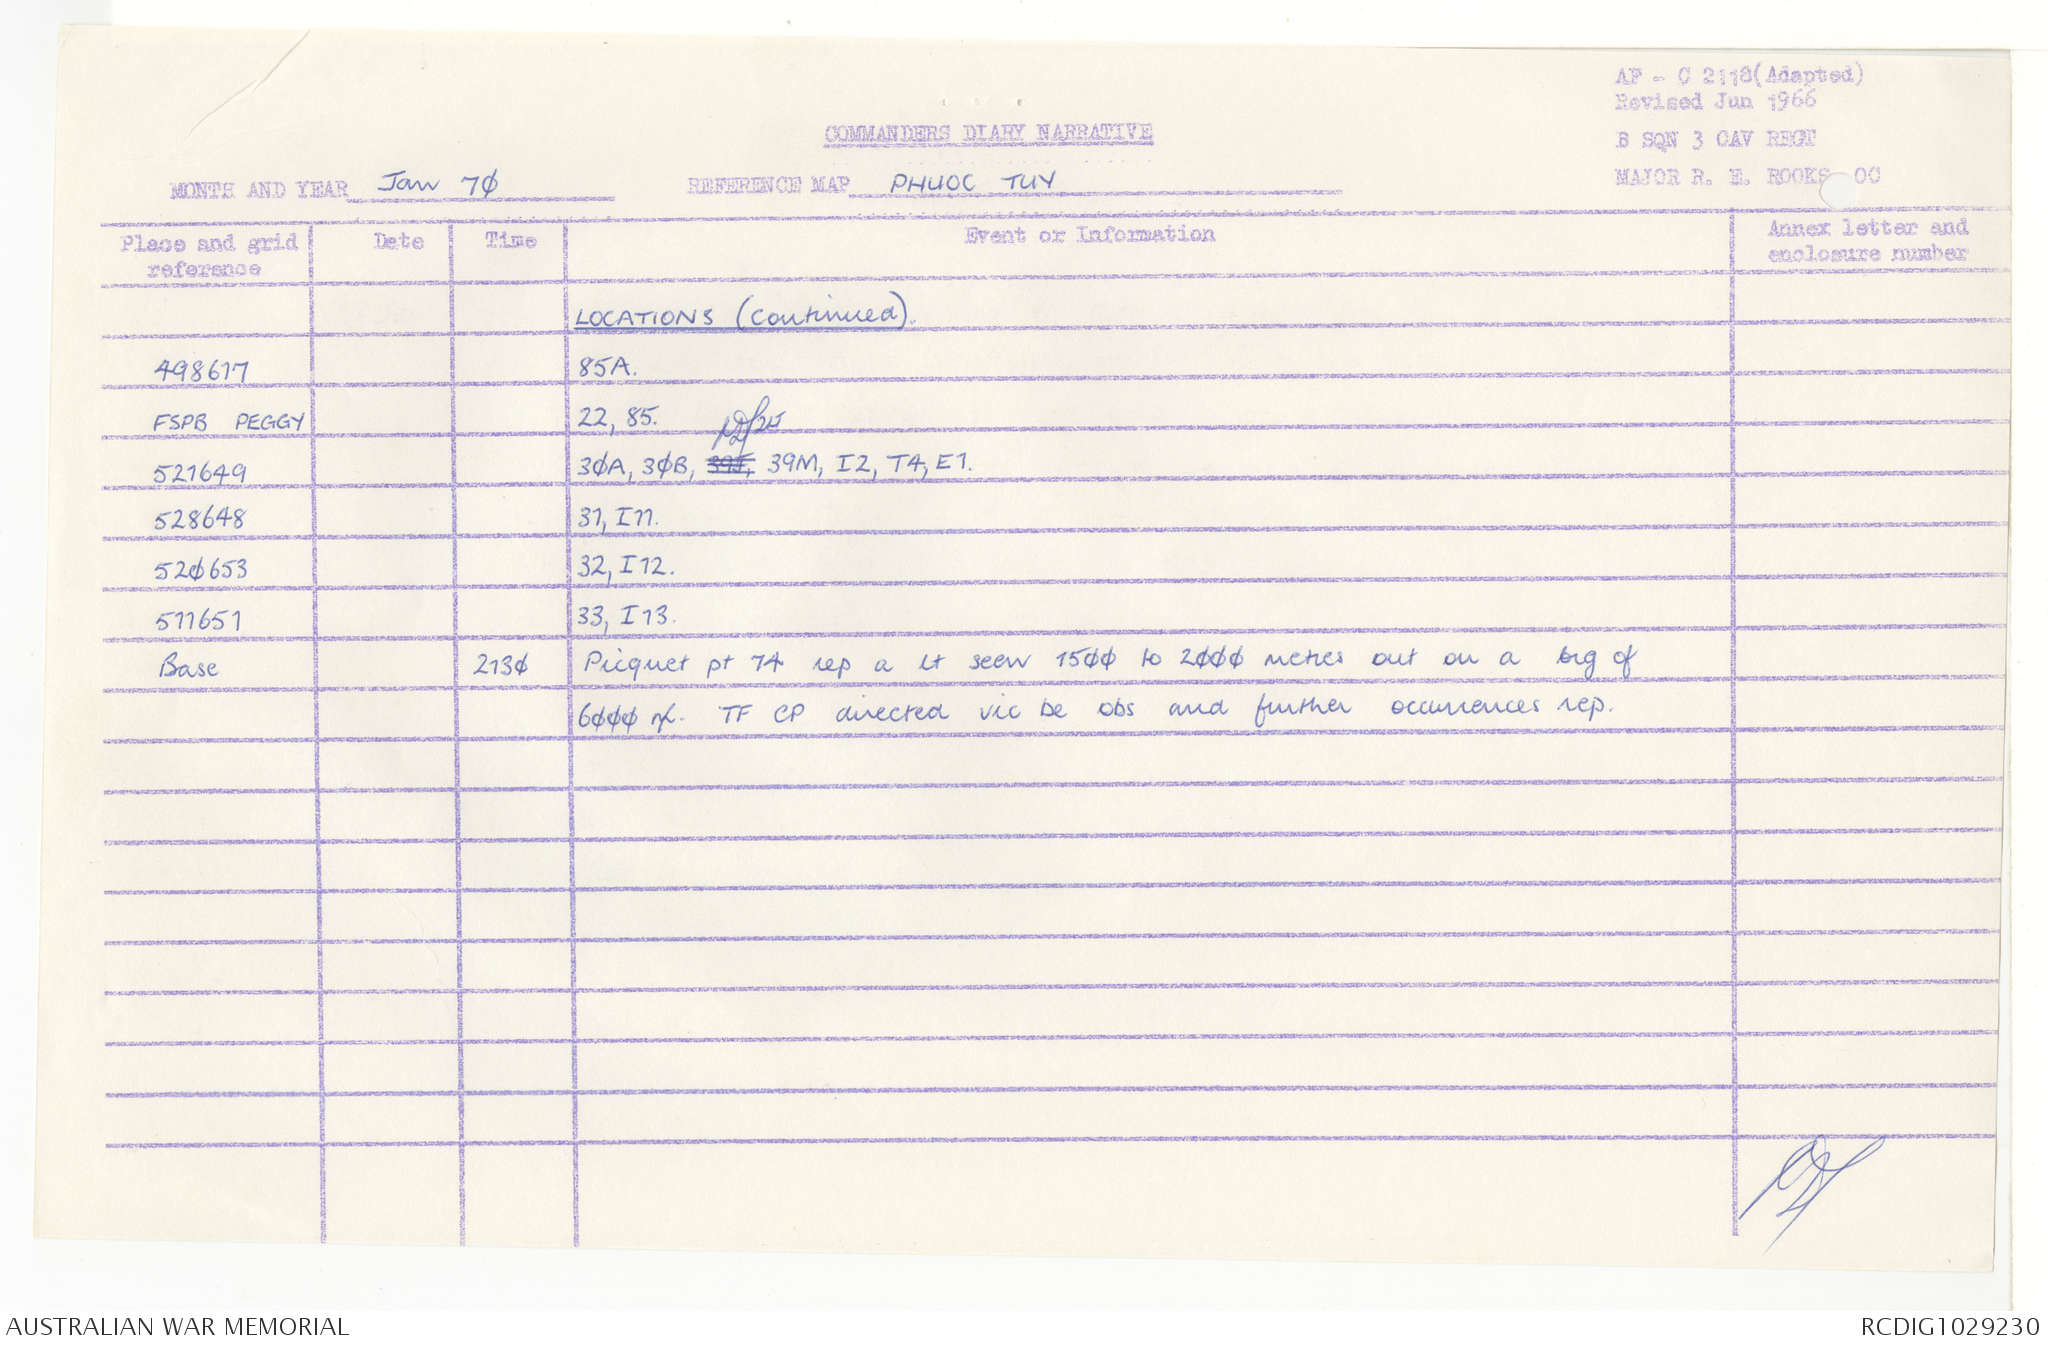 AF - C 2118(Adapted)
Revised Jun 1966
B SQN 3 CAV REGT
MAJOR R. E. ROOKS OC
COMMANDERS DIARY NARRATIVE
MONTH AND YEAR Jan 7Ø REFERENCE MAP PHUOC TUY
Place and grid reference Date Time Event or Information Annex letter and enclosure number
LOCATIONS (continued).
498617 85A.
FSPB PEGGY 22, 85.
521649 3ØA, 3ØB, 39M, I2, T4, E1.
528648 31, I11.
52Ø653 32, I12.
511651 33, I13.
Base 213Ø Picquet pt 74 rep a lt seen 15ØØ to 2ØØØ metres out on a brg of
6ØØØ m. TF CP directed vic be obs and further occurrences rep.
AUSTRALIAN WAR MEMORIAL RCDIG1029230